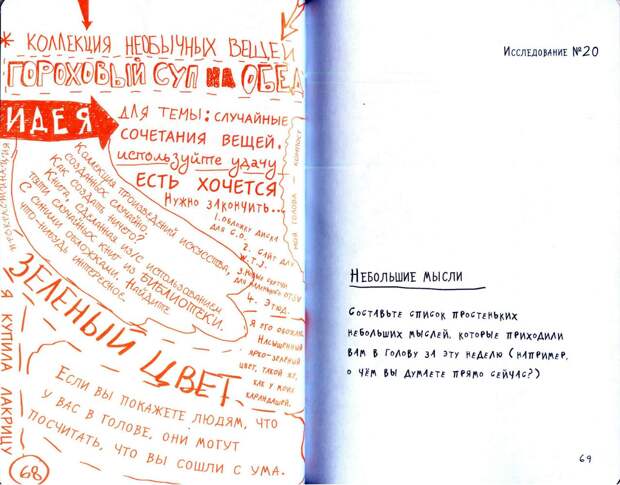 * КОЛЛЕКЦИЯ НЕОБЫЧНЫХ ВЕЩЕЙ
ГОРОХОВЫЙ СУП НА ОБЕД
ИДЕЯ
ДЛЯ ТЕМЫ: СЛУЧАЙНЫЕ
СОЧЕТАНИЯ ВЕЩЕЙ.
используйте удачу
ЕСТЬ ХОЧЕТСЯ
Нужно закончить...
1. обложку диска
для C.D.
2. Сайт для
W.T.J.
3. новые
для
4. Этюд.
Коллекция произведений искусства,
созданных случайно.
Как создать ничего?
Книга, сделанная из/с использованием
пяти случайных книг из БИБЛИОТЕКИ.
С синими обложками. Найдите
что-нибудь интересное.
ЗЕЛЕНЫЙ ЦВЕТ.
Я его обожаю.
Насыщенный
ярко-зеленый
цвет, такой же,
как у моих
карандашей.
МОЯ ГОЛОВА КОМПОСТ
ПРОКРАСТИНАЦИЯ
Я КУПИЛА ЛАКРИЦУ
Если вы покажете людям, что
у вас в голове, они могут
посчитать, что вы сошли с ума.
68
Исследование №20
Небольшие мысли
Составьте список простеньких
небольших мыслей, которые приходили
вам в голову за эту неделю (например,
о чём вы думаете прямо сейчас?)
69